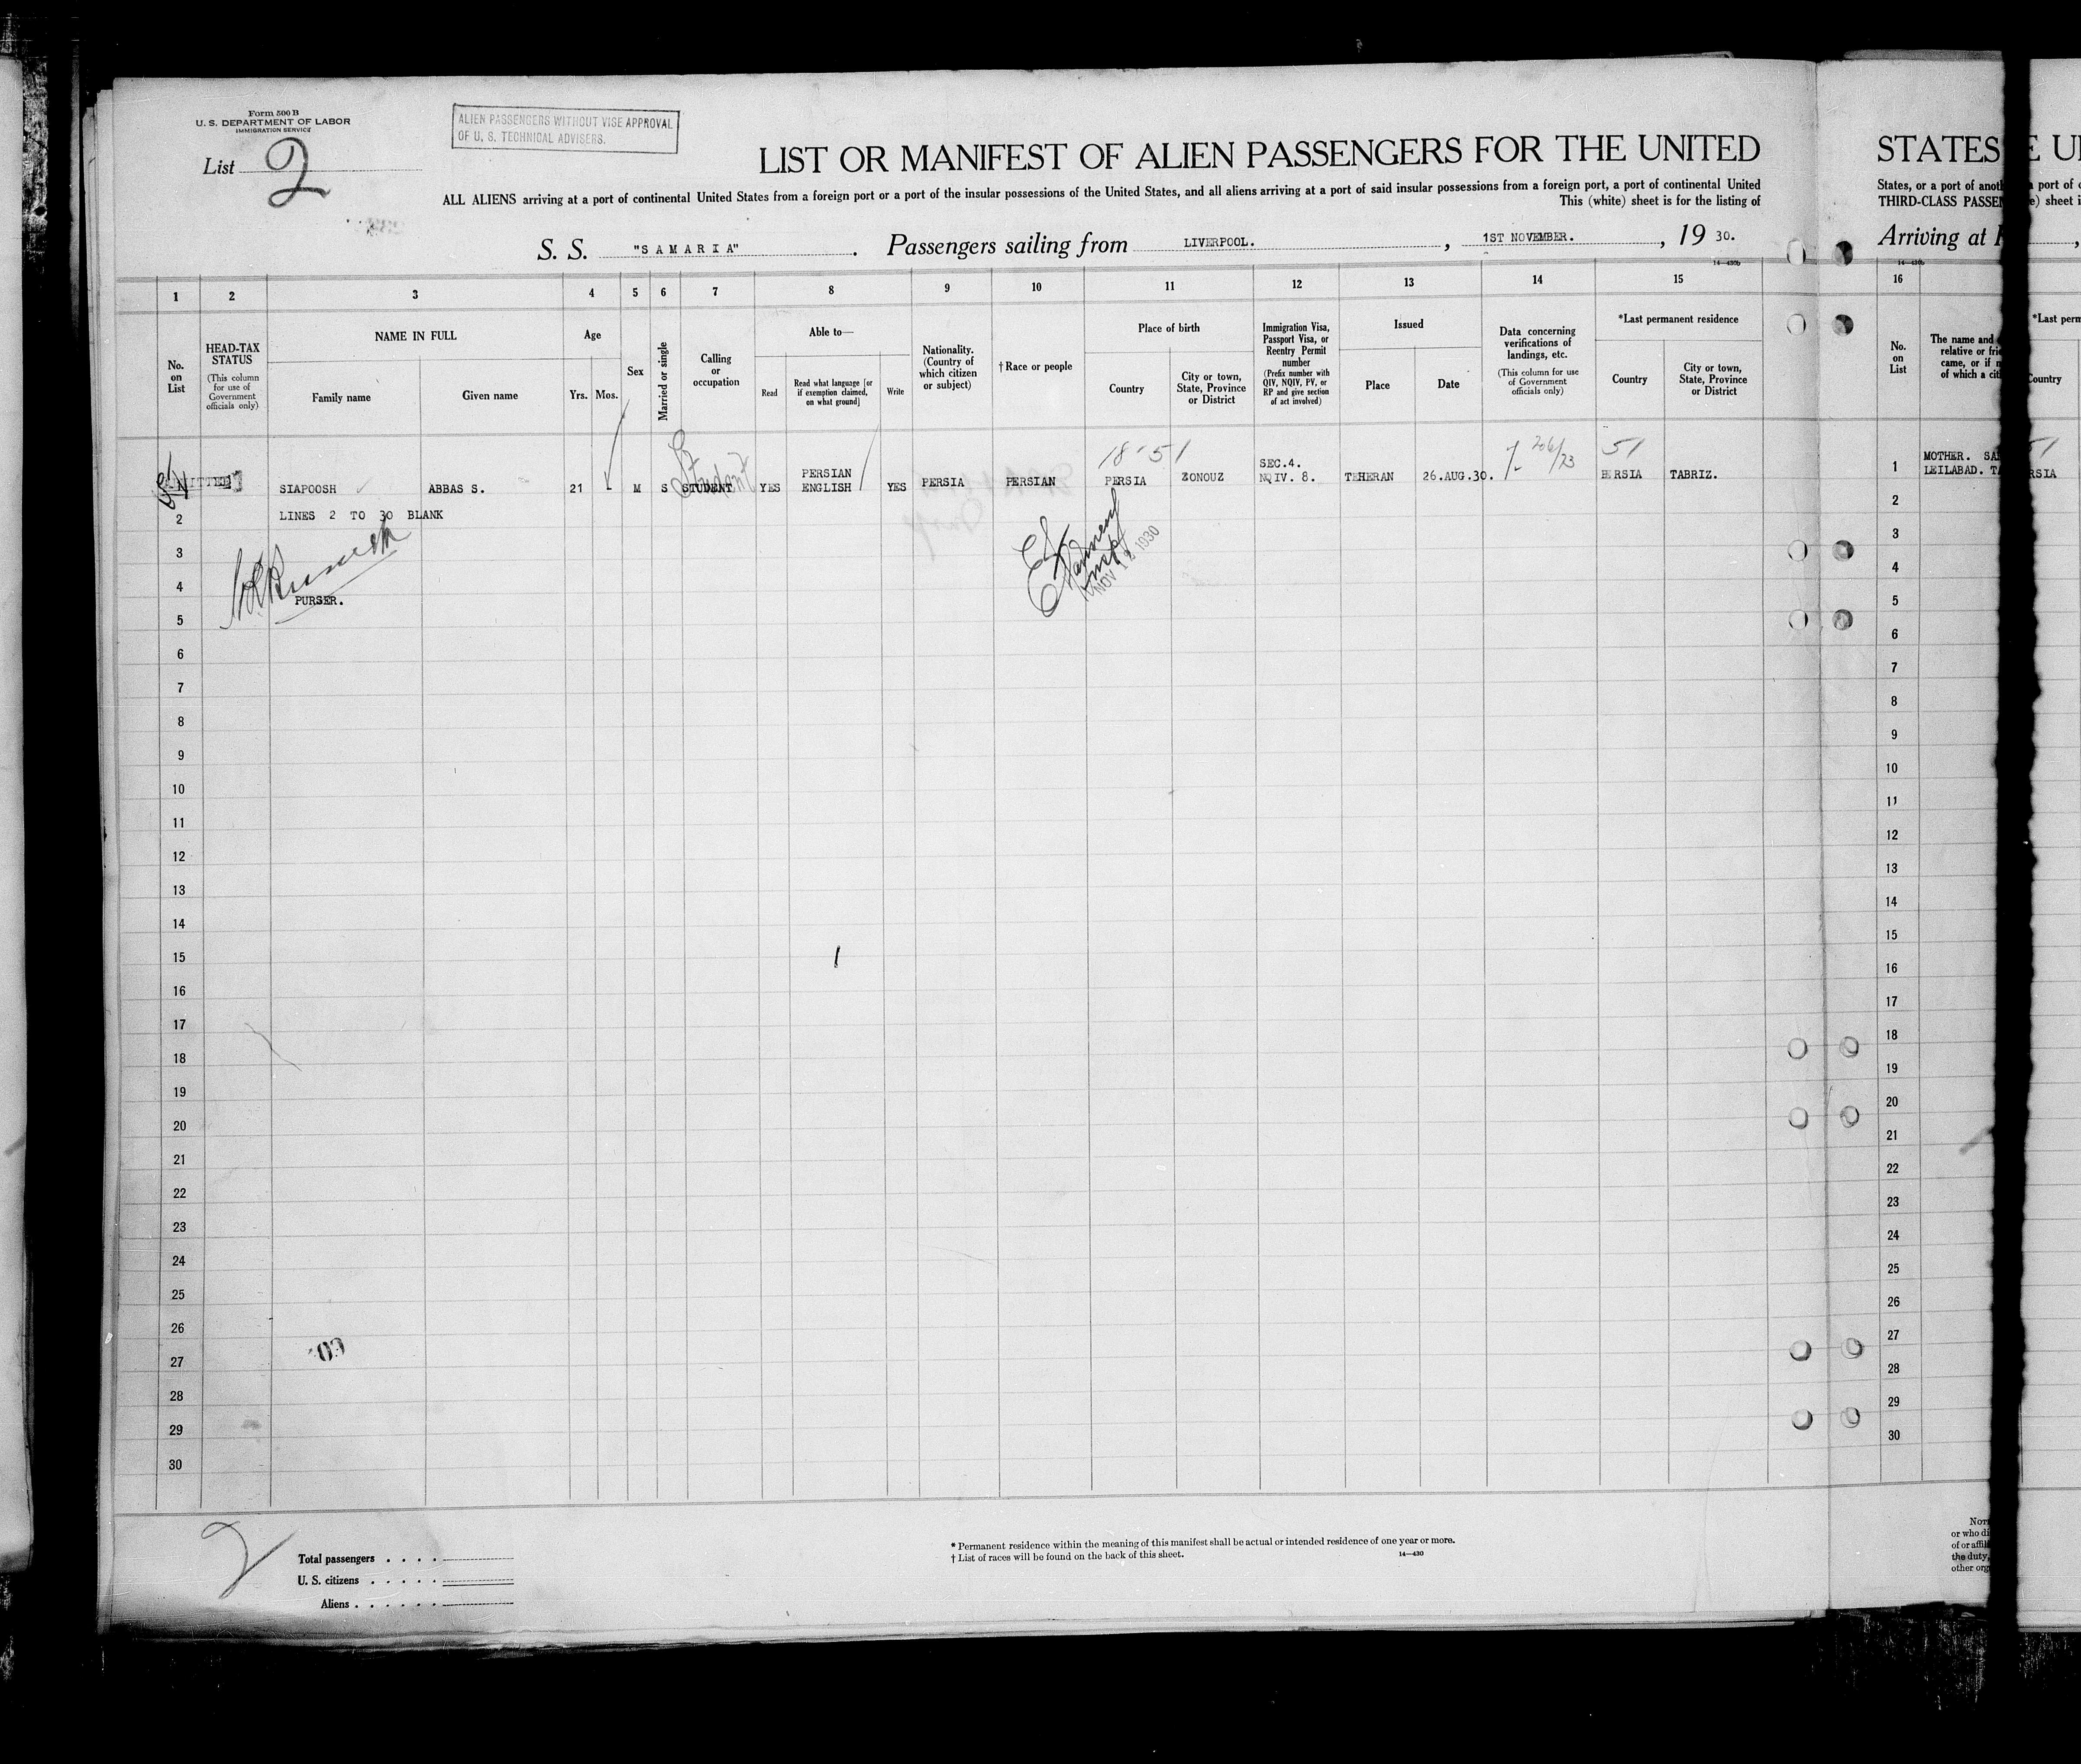 Form 500 B
U. S. DEPARTMENT OF LABOR
IMMIGRATION SERVICE
List 2
ALIEN PASSENGERS WITHOUT VISE APPROVAL
OF U. S. TECHNICAL ADVISERS.
LIST OR MANIFEST OF ALIEN PASSENGERS FOR THE UNITED
ALL ALIENS arriving at a port of continental United States from a foreign port or a port of the insular possessions of the United States, and all aliens arriving at a port of said insular possessions from a foreign port, a port of continental United
This (white) sheet is for the listing of
S. S. "SAMARIA". Passengers sailing from LIVERPOOL. , 1ST NOVEMBER. , 19 30.
14—430b
1 2 3 4 5 6 7 8 9 10 11 12 13 14 15
No. on List
HEAD-TAX STATUS
(This column for use of Government officials only)
NAME IN FULL
Family name
Given name
Age
Yrs. Mos.
Sex
Married or single
Calling or occupation
Able to—
Read
Read what language [or if exemption claimed, on what ground]
Write
Nationality. (Country of which citizen or subject)
†Race or people
Place of birth
Country
City or town, State, Province or District
Immigration Visa, Passport Visa, or Reentry Permit number
(Prefix number with QIV, NQIV, PV, or RP and give section of act involved)
Issued
Place
Date
Data concerning verifications of landings, etc.
(This column for use of Government officials only)
*Last permanent residence
Country
City or town, State, Province or District
18-51
51
SIAPOOSH ABBAS S. 21 - M S STUDENT YES PERSIAN ENGLISH YES PERSIA PERSIAN PERSIA ZONOUZ SEC.4. NQIV. 8. TEHERAN 26.AUG.30. PERSIA TABRIZ.
Student
2 LINES 2 TO 30 BLANK
3
4
PURSER.
NOV 12 1930
5
6
7
8
9
10
11
12
13
14
15
16
17
18
19
20
21
22
23
24
25
26
27
28
29
30
2
Total passengers
U. S. citizens
Aliens
* Permanent residence within the meaning of this manifest shall be actual or intended residence of one year or more.
† List of races will be found on the back of this sheet.
14—430
STATES
States, or a port of
THIRD-CLASS
Arriving at
16
No. on List
The name and
relative or
came, or if
of which a
1 MOTHER.
LEILABAD.
2
3
4
5
6
7
8
9
10
11
12
13
14
15
16
17
18
19
20
21
22
23
24
25
26
27
28
29
30
or who
of or
the duty,
other
port of
sheet
*Last